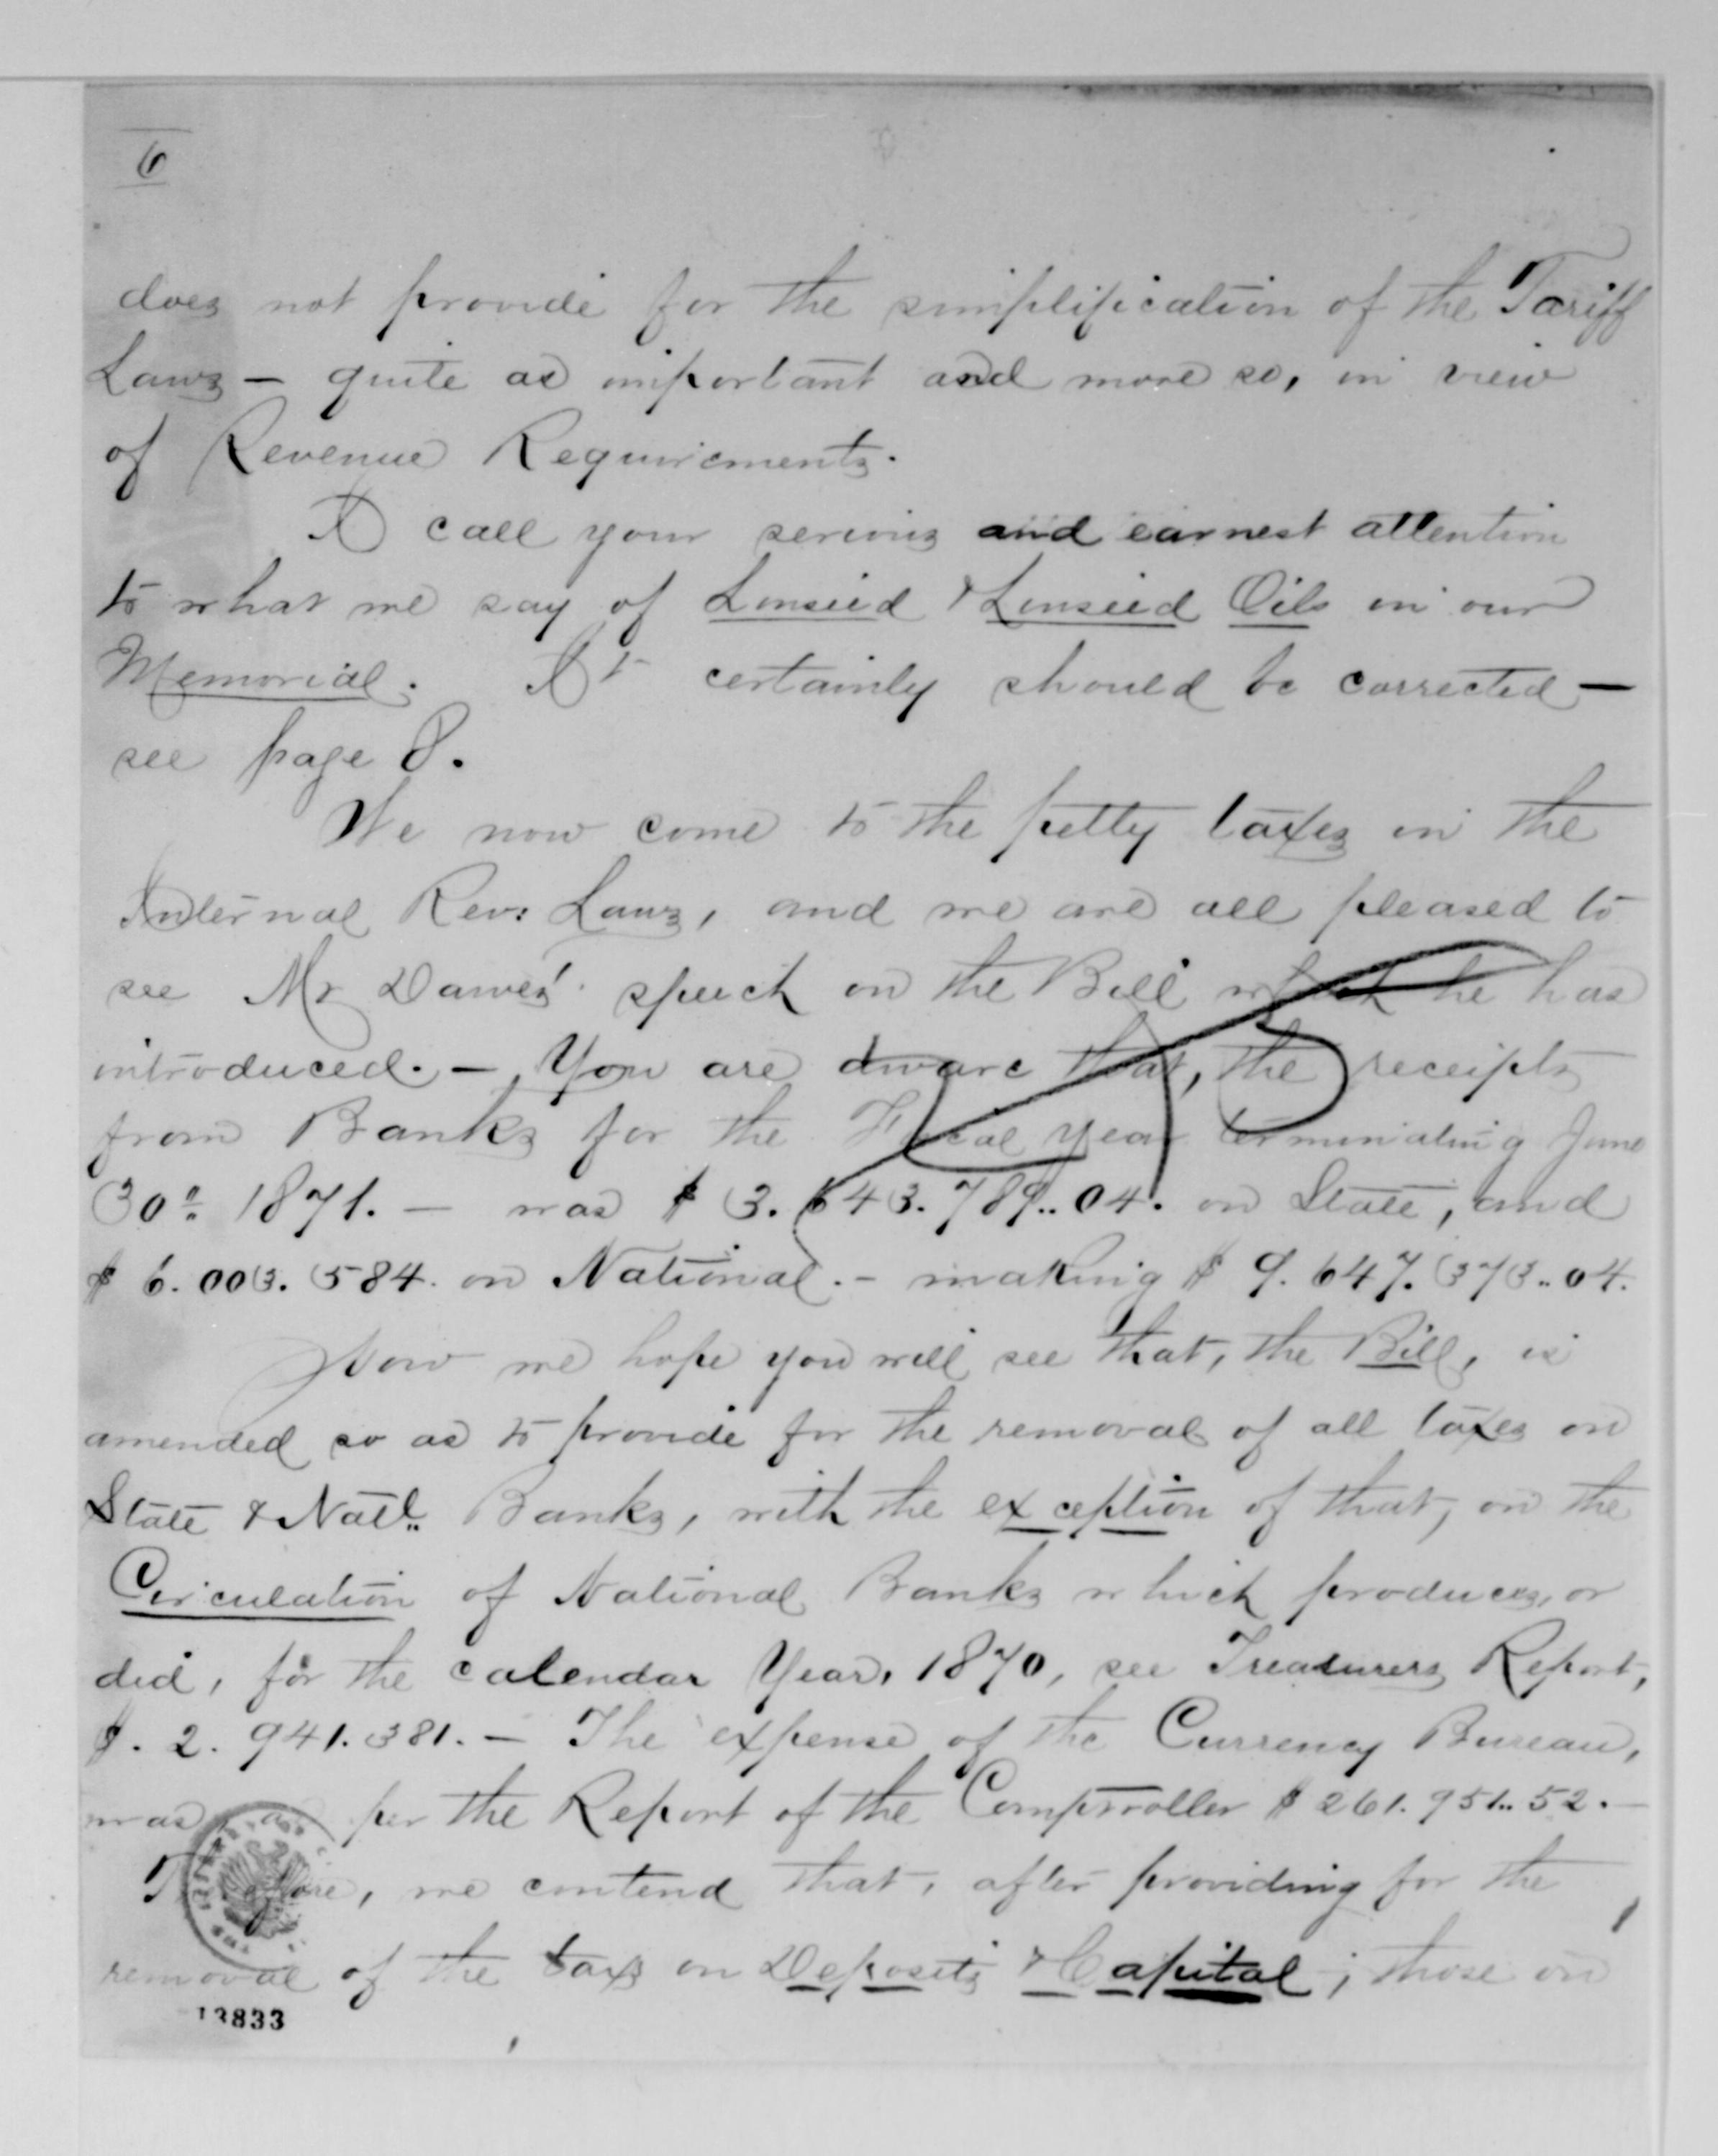 6
does not provide for the simplification of the Tariff
Laws – quite as important and more so, in view
of Revenue Requirements.
I call your serious and earnest attention
to what we say of Linseed & Linseed Oils in our
Memorial. It certainly should be corrected –
see page 8.
We now come to the petty taxes in the
Internal Rev: Laws, and we are all pleased to
see Mr Dawes' speech on the Bill which he has
introduced. – You are aware that, the receipts
from Banks for the Fiscal year terminating June
30" 1871. – was $ 3.643.789..04. on State, and
$ 6.003.584. on National. – making $ 9.647.373..04.
Now we hope you will see that, the Bill, is
amended so as to provide for the removal of all taxes on
State & Natl.. Banks, with the exception of that, on the
Circulation of National Banks which produces, or
did, for the calendar Year, 1870, see Treasurers Report,
$. 2.941.381. – The expense of the Currency Bureau,
was, as per the Report of the Comptroller $ 261.951..52. –
Therefore, we contend that, after providing for the
removal of the tax on Deposits & Capital; those on
13833